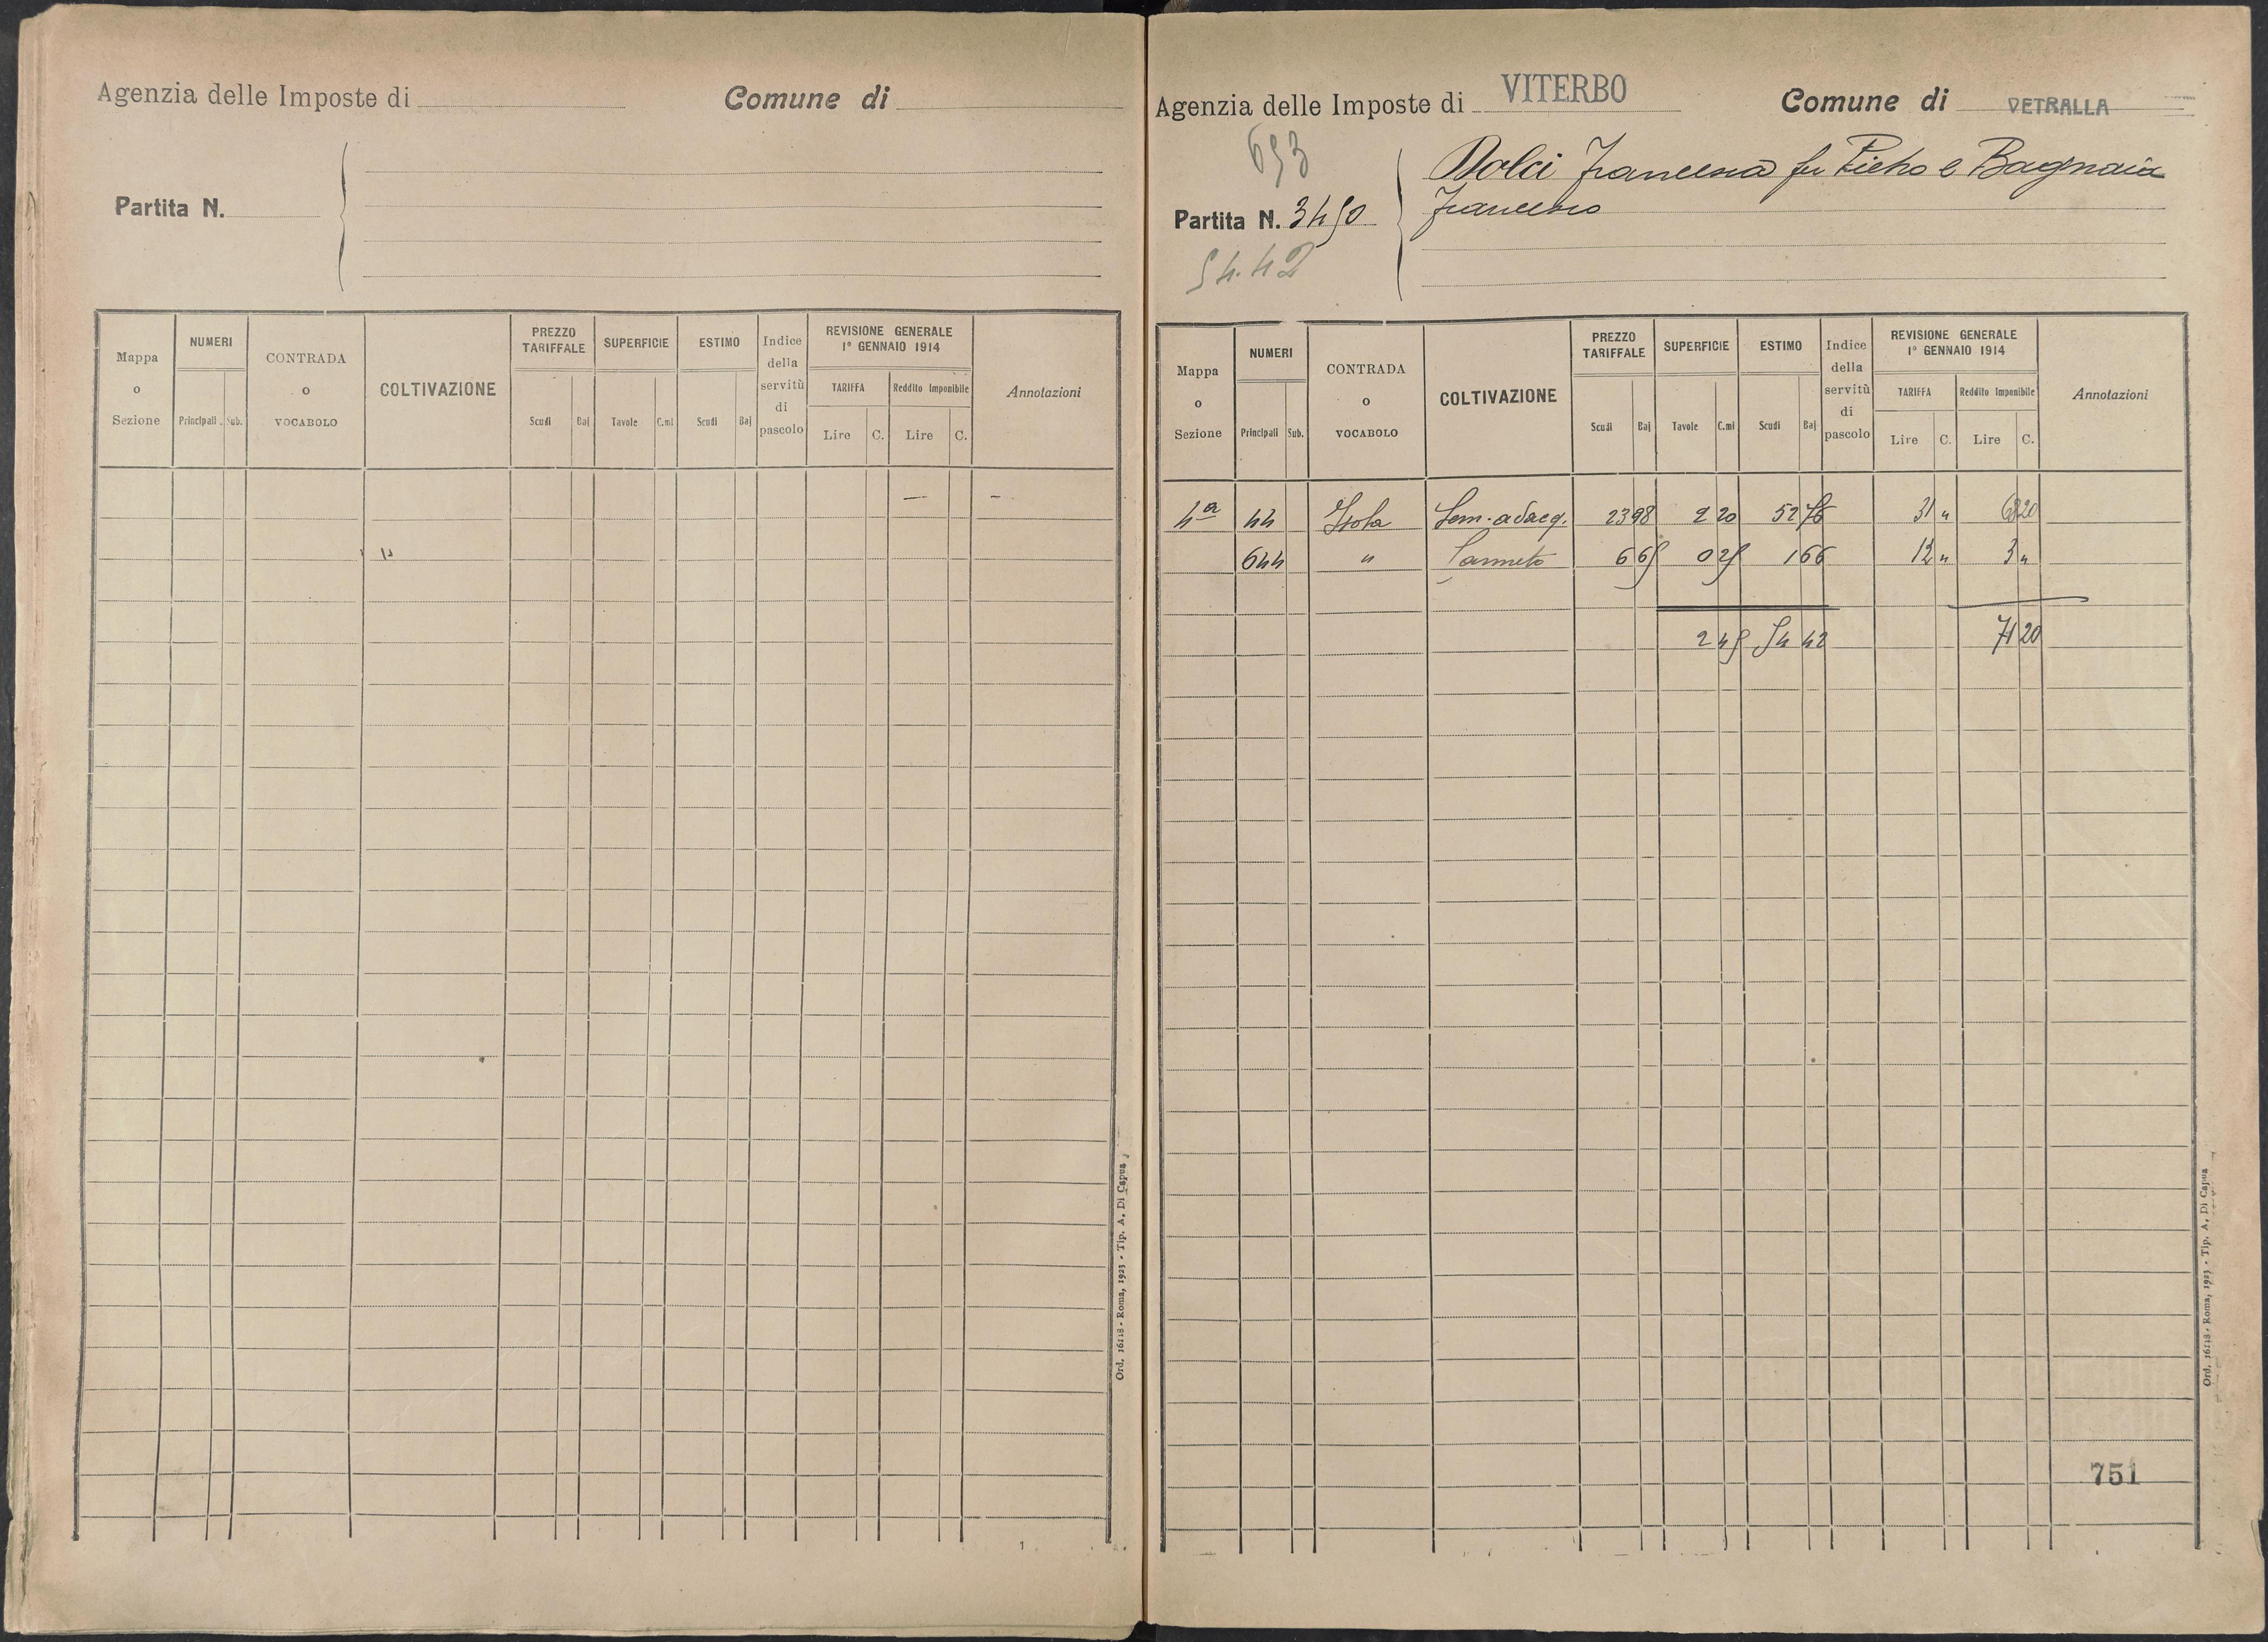 Agenzia delle Imposte di Comune di
Partita N.
Mappa o Sezione NUMERI Principali Sub. CONTRADA o VOCABOLO COLTIVAZIONE PREZZO TARIFFALE Scudi Baj SUPERFICIE Tavole C.mi ESTIMO Scudi Baj Indice della servitù di pascolo REVISIONE GENERALE 1° GENNAIO 1914 TARIFFA Lire C. Reddito Imponibile Lire C. Annotazioni
Ord. 16118 - Roma, 1923 - Tip. A. Di Capua
Agenzia delle Imposte di VITERBO Comune di VETRALLA
653
Dolci Francesca fu Pietro e Bagnaia
Partita N. 3450 Francesco
54.42
Mappa o Sezione NUMERI Principali Sub. CONTRADA o VOCABOLO COLTIVAZIONE PREZZO TARIFFALE Scudi Baj SUPERFICIE Tavole C.mi ESTIMO Scudi Baj Indice della servitù di pascolo REVISIONE GENERALE 1° GENNAIO 1914 TARIFFA Lire C. Reddito Imponibile Lire C. Annotazioni
4a 44 Isola Sem. adacq. 23 98 2 20 52 76 31 " 68 20
644 " Canneto 6 65 0 25 1 66 12 " 3 "
2 45 54 42 71 20
751
Ord. 16118 - Roma, 1923 - Tip. A. Di Capua